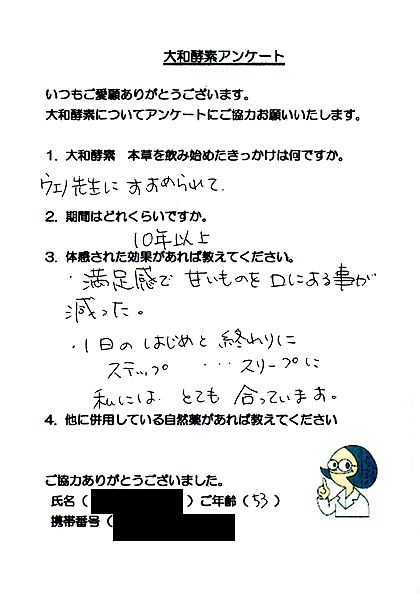 大和酵素アンケート
いつもご愛願ありがとうございます。
大和酵素についてアンケートにご協力お願いいたします。
1. 大和酵素 本草を飲み始めたきっかけは何ですか。
ウエノ先生に すすめられて.
2. 期間はどれくらいですか。
10年以上
3. 体感された効果があれば教えてください。
・満足感で 甘いものを 口にある事が
減った。
・1日の はじめと 終わりに
ステップ ・・・スリープに
私には とても 合っています。
4. 他に併用している自然薬があれば教えてください
ご協力ありがとうございました。
氏名( )ご年齢(53)
携帯番号(